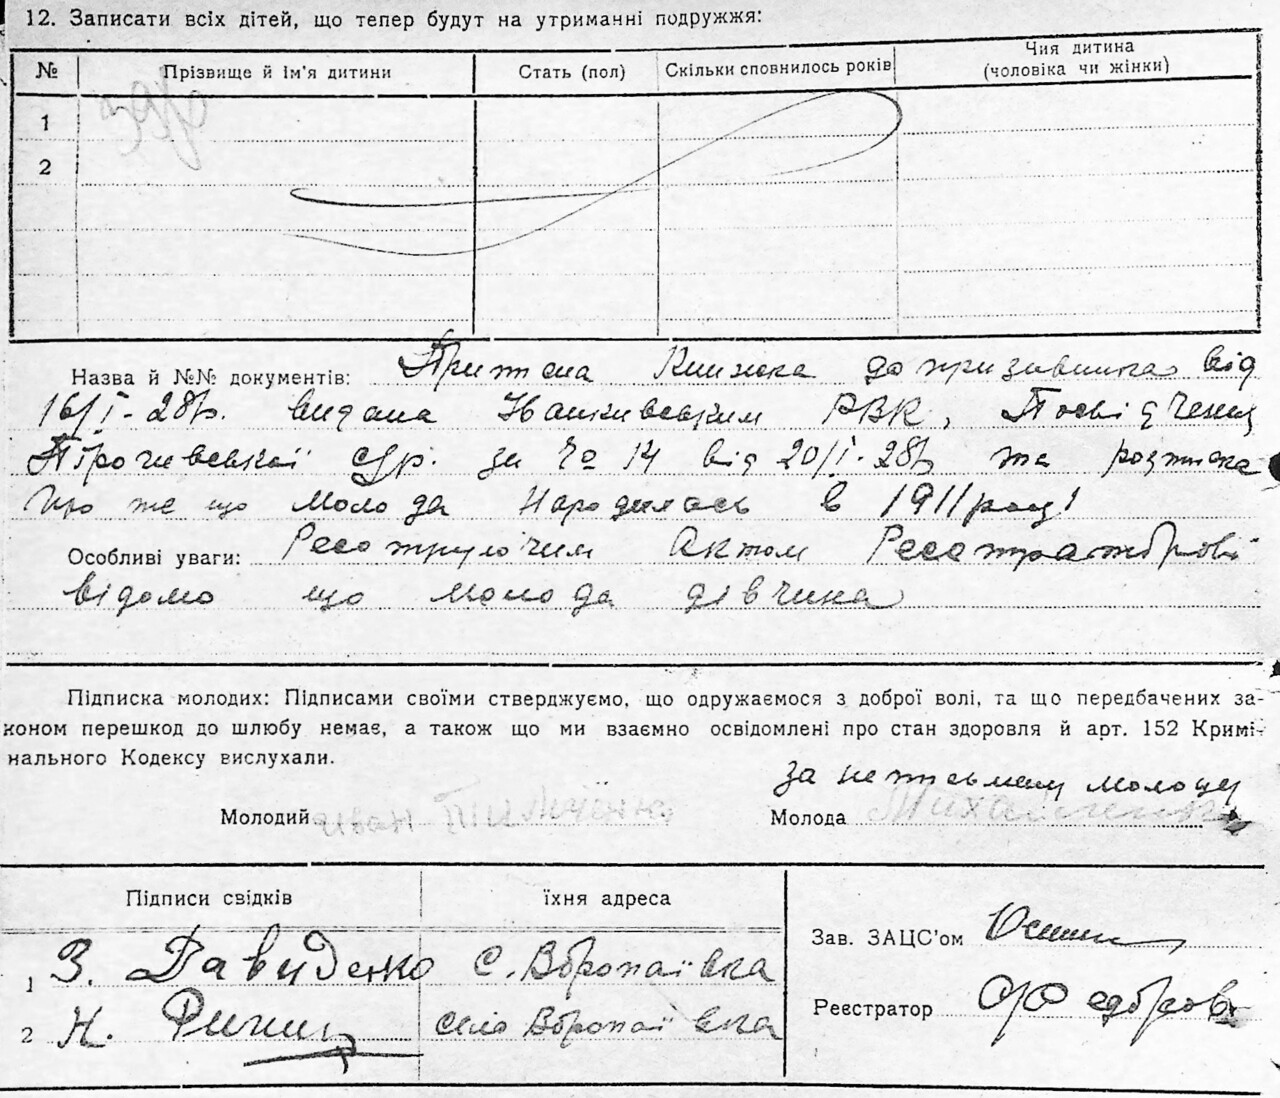 12. Записати всіх дітей, що тепер будут на утриманні подружжя:
№ Прізвище й ім'я дитини Стать (пол) Скільки сповнилось років Чия дитина (чоловіка чи жінки)
1
2
Назва й №№ документів: Книжка допризивника від
16/I-28р. видана РВК, Посвідчення
за № 14 від 20/I-28р та розписка
про те що молода народилась в 1911 році
Особливі уваги: актом
відомо що молода дівчина
Підписка молодих: Підписами своїми стверджуємо, що одружаємося з доброї волі, та що передбачених за-
коном перешкод до шлюбу немає, а також що ми взаємно освідомлені про стан здоровля й арт. 152 Кримі-
нального Кодексу вислухали.
за неписьмену молоду
Молодий Иван Молода
Підписи свідків їхня адреса
Зав. ЗАЦС'ом
1 З. Давиденко С. Воропаївка
Реєстратор
2 Н. село Воропаївка